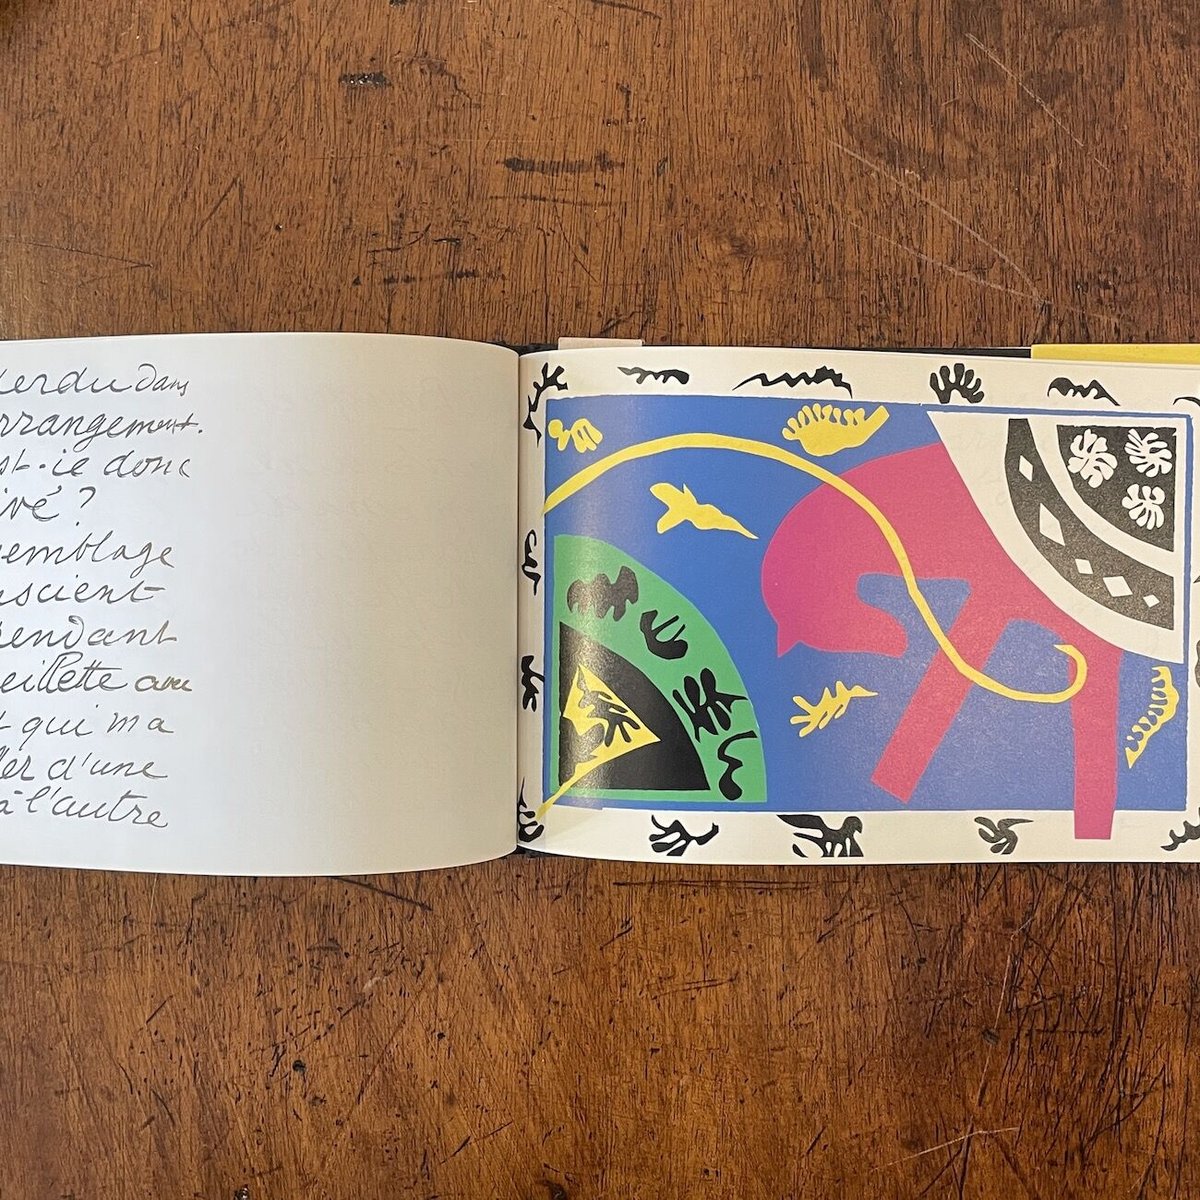 erdu dans
rrangement.
st-ce donc
ivé ?
semblage
nscient
pendant
eillette avec
t qui m a
ler d'une
à l'autre